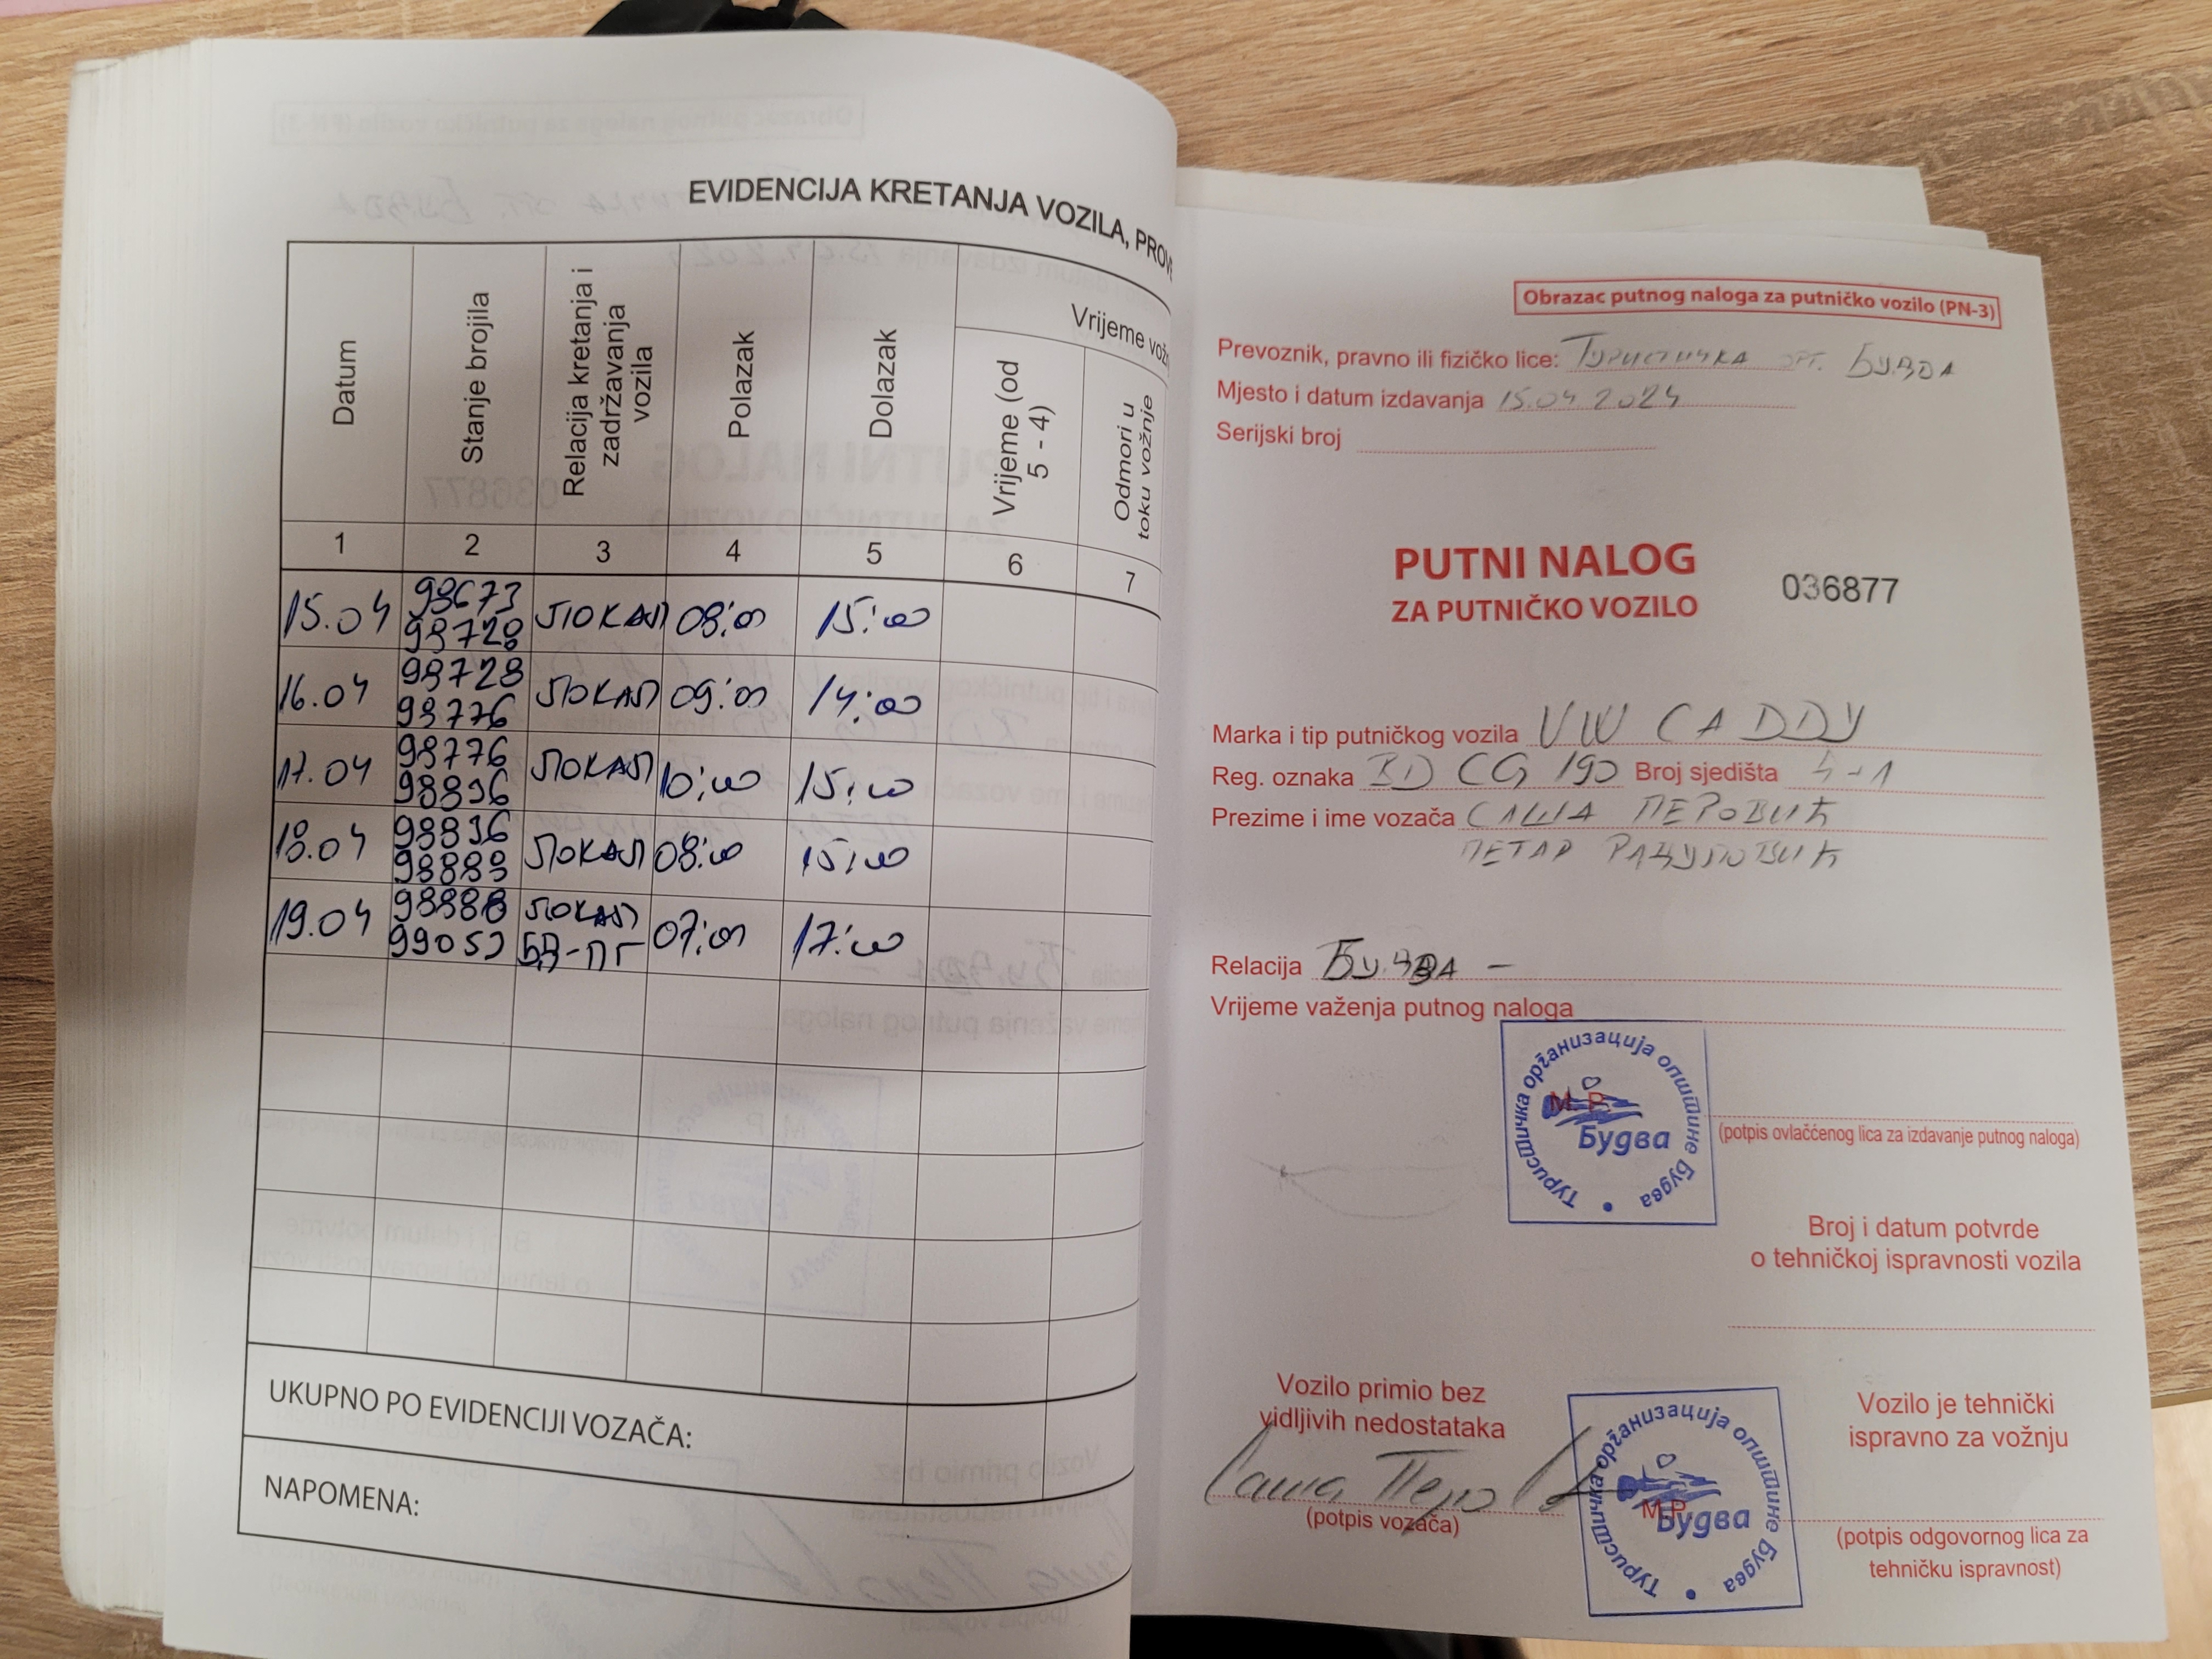 EVIDENCIJA KRETANJA VOZILA, PROV
Datum
Stanje brojila
Relacija kretanja i
zadržavanja
vozila
Polazak
Dolazak
Vrijeme vož
Vrijeme (od
5 - 4)
Odmori u
toku vožnje
1 2 3 4 5 6 7
15.04 98673 ЛОКАЛ 08:00 15:00
98728
16.04 98728 ЛОКАЛ 09:00 14:00
98776
17.04 98776 ЛОКАЛ 10:00 15:00
98836
18.04 98836 ЛОКАЛ 08:00 15:00
98888
19.04 98888 ЛОКАЛ 07:00 17:00
99052 БД-ПГ
UKUPNO PO EVIDENCIJI VOZAČA:
NAPOMENA:
Obrazac putnog naloga za putničko vozilo (PN-3)
Prevoznik, pravno ili fizičko lice: Туристичка орг. Будва
Mjesto i datum izdavanja 15.04 2024
Serijski broj
PUTNI NALOG
036877
ZA PUTNIČKO VOZILO
Marka i tip putničkog vozila VW CADDY
Reg. oznaka BD CG 190 Broj sjedišta 4-1
Prezime i ime vozača САША ПЕРОВИЋ
ПЕТАР РАЦУЛОВИЋ
Relacija Будва -
Vrijeme važenja putnog naloga
Туристичка организација општине Будва
М. Р.
Будва
(potpis ovlaččenog lica za izdavanje putnog naloga)
Broj i datum potvrde
o tehničkoj ispravnosti vozila
Vozilo primio bez
vidljivih nedostataka
Саша Перо
(potpis vozača)
Туристичка организација општине Будва
M.P.
Будва
Vozilo je tehnički
ispravno za vožnju
(potpis odgovornog lica za
tehničku ispravnost)